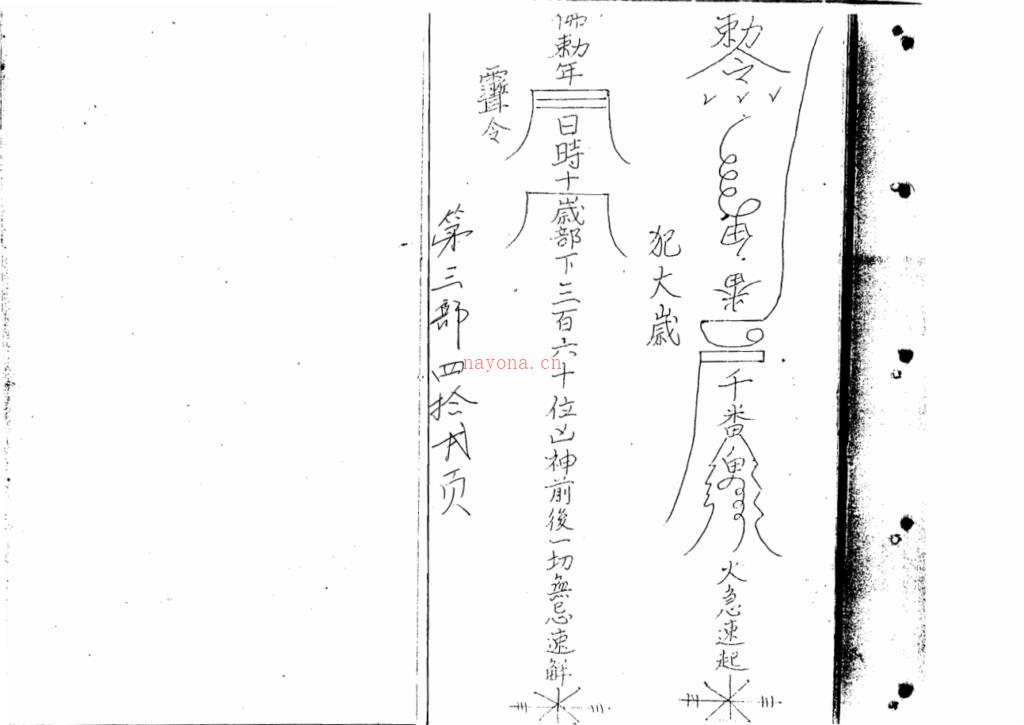 敕令
千番
火急速起
犯大歲
佛敕年
日時十歲部下三百六十位凶神前後一切無忌速解
靈令
第三部四拾
页
nayona.cn